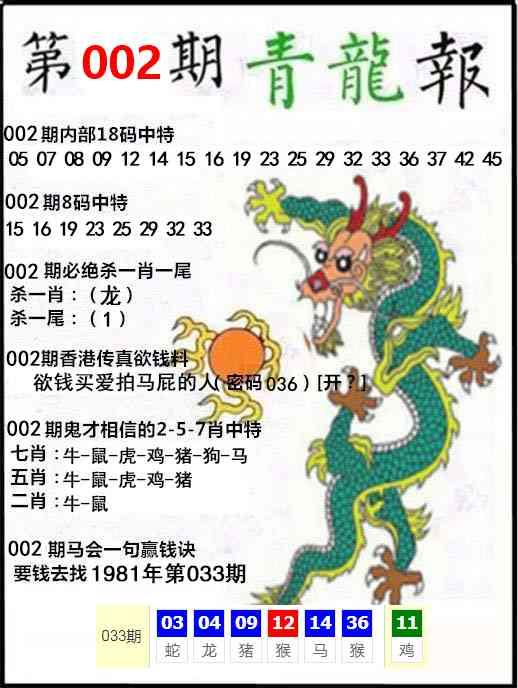 第002期青龍報
002期内部18码中特
05 07 08 09 12 14 15 16 19 23 25 29 32 33 36 37 42 45
002期8码中特
15 16 19 23 25 29 32 33
002期必绝杀一肖一尾
杀一肖：（龙）
杀一尾：（1）
002期香港传真欲钱料
欲钱买爱拍马屁的人（密码036）[开？]
002期鬼才相信的2-5-7肖中特
七肖：牛-鼠-虎-鸡-猪-狗-马
五肖：牛-鼠-虎-鸡-猪
二肖：牛-鼠
002期马会一句赢钱诀
要钱去找1981年第033期
033期 03 04 09 12 14 36 11
蛇 龙 猪 猴 马 猴 鸡